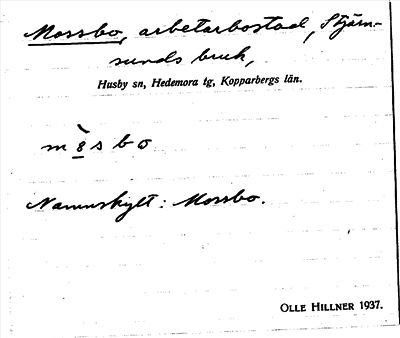 Mossbo, arbetarbostad, Stjärn-
sunds bruk,
Husby sn, Hedemora tg, Kopparbergs län.
m8̀sbo
Namnskylt: Mossbo.
OLLE HILLNER 1937.